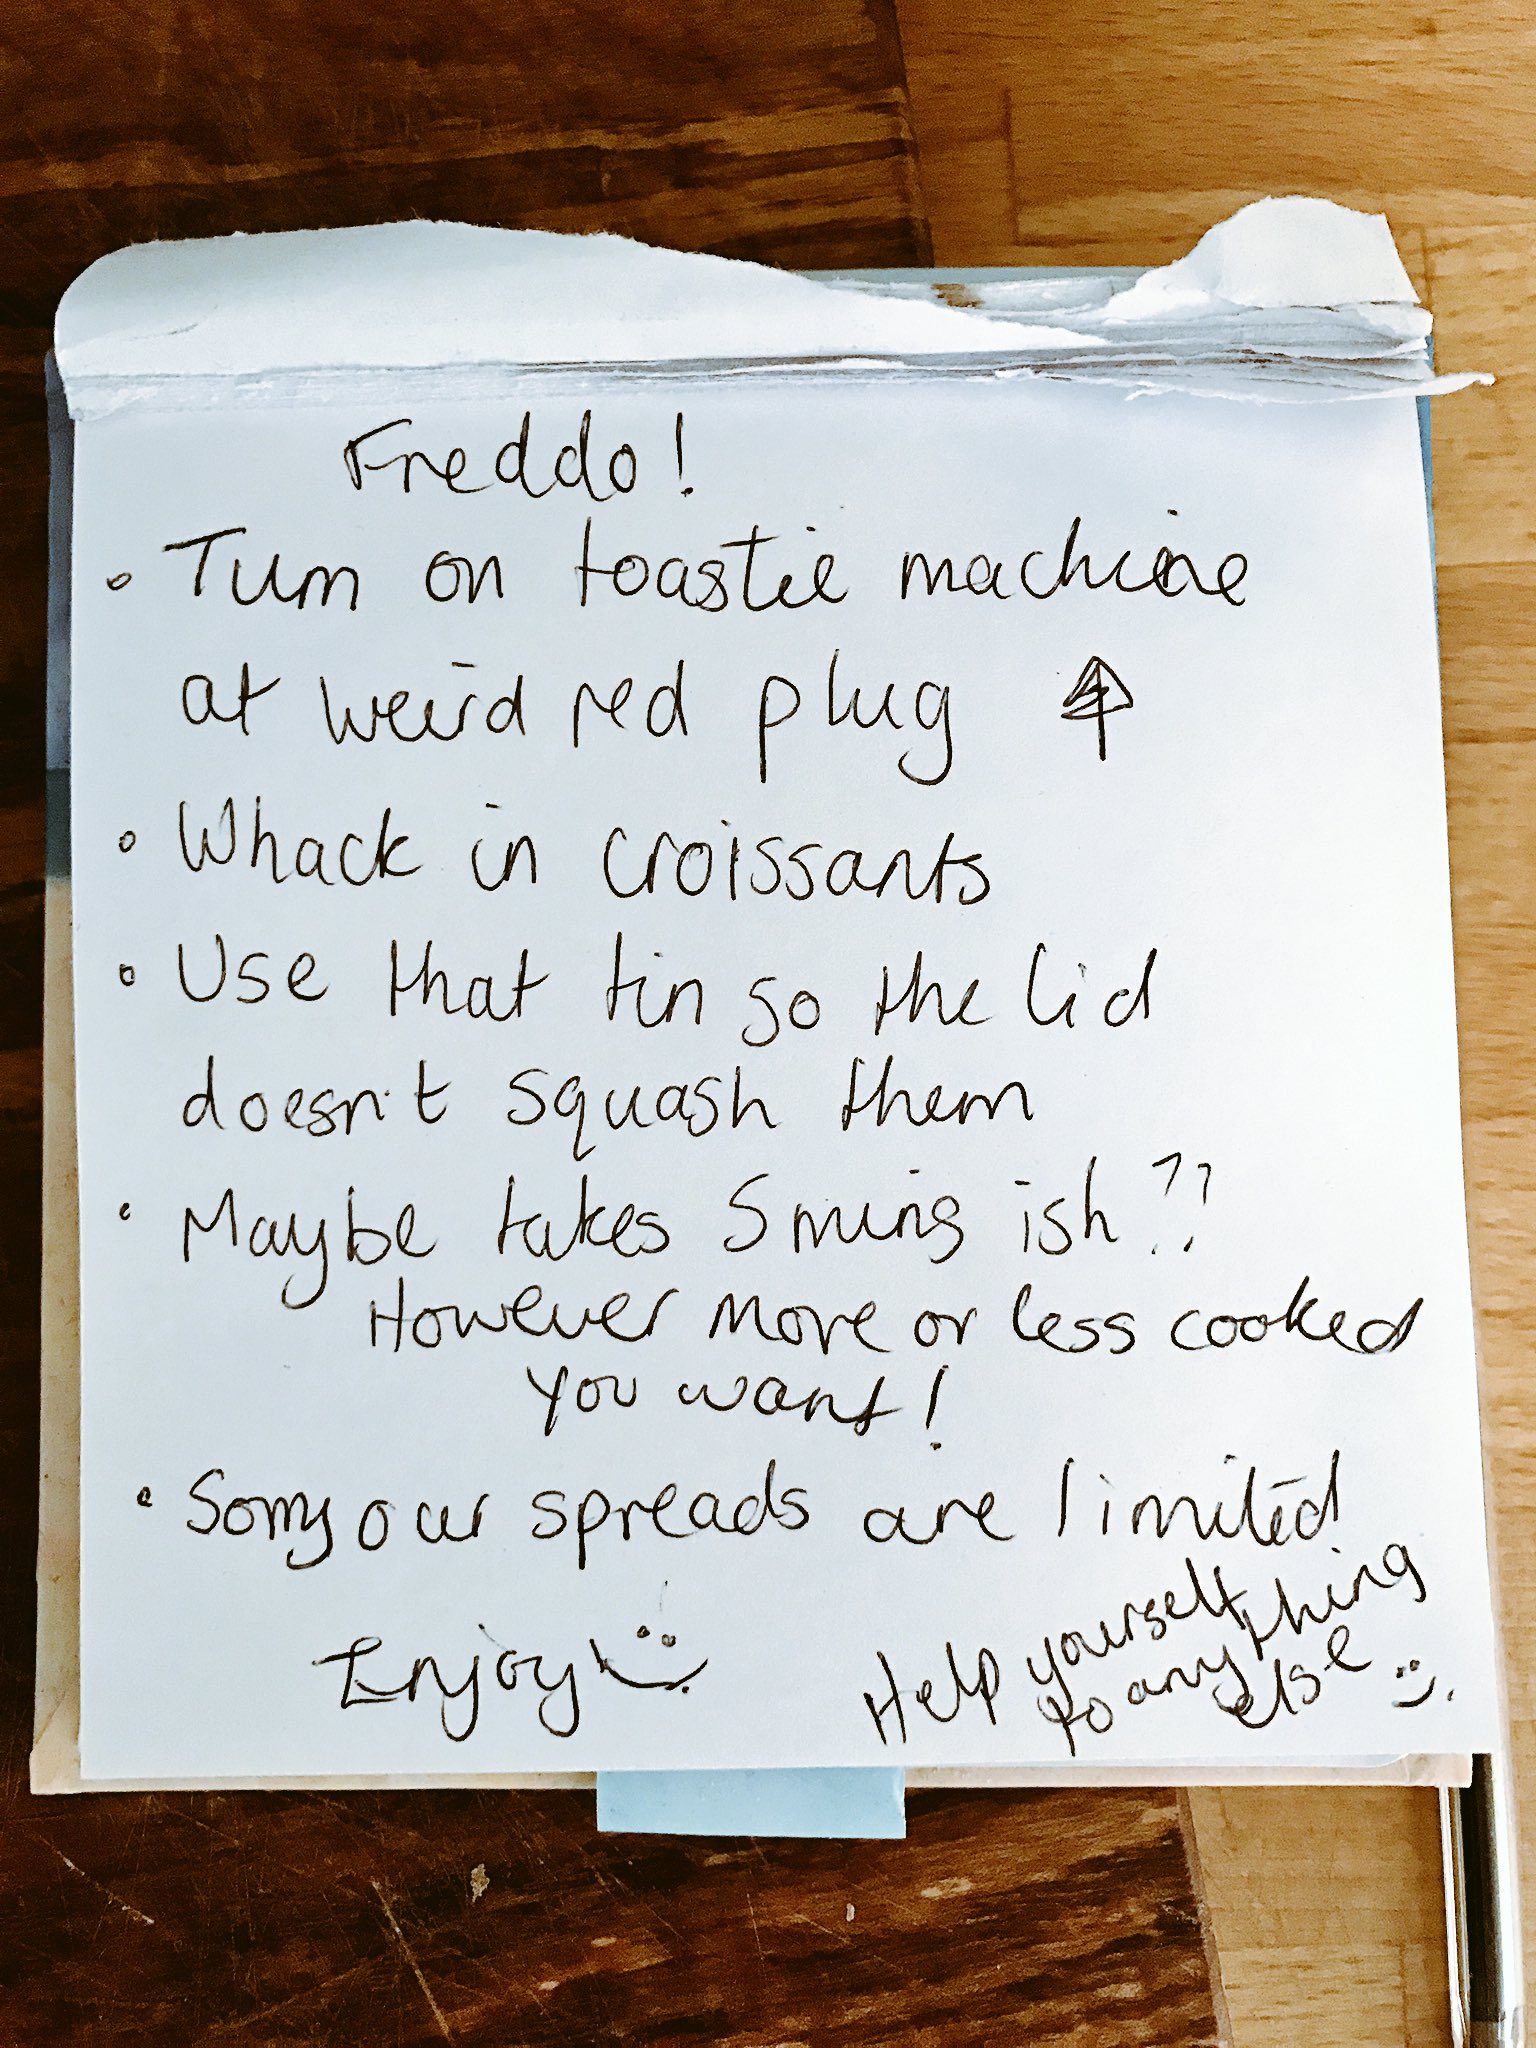 Freddo!
• Turn on toastie machine
at weird red plug ↑
• Whack in croissants
• Use that tin so the lid
doesn't squash them
• Maybe takes 5 mins ish??
However more or less cooked
you want!
• Sorry our spreads are limited
Enjoy! :)
Help yourself
to anything
else :)